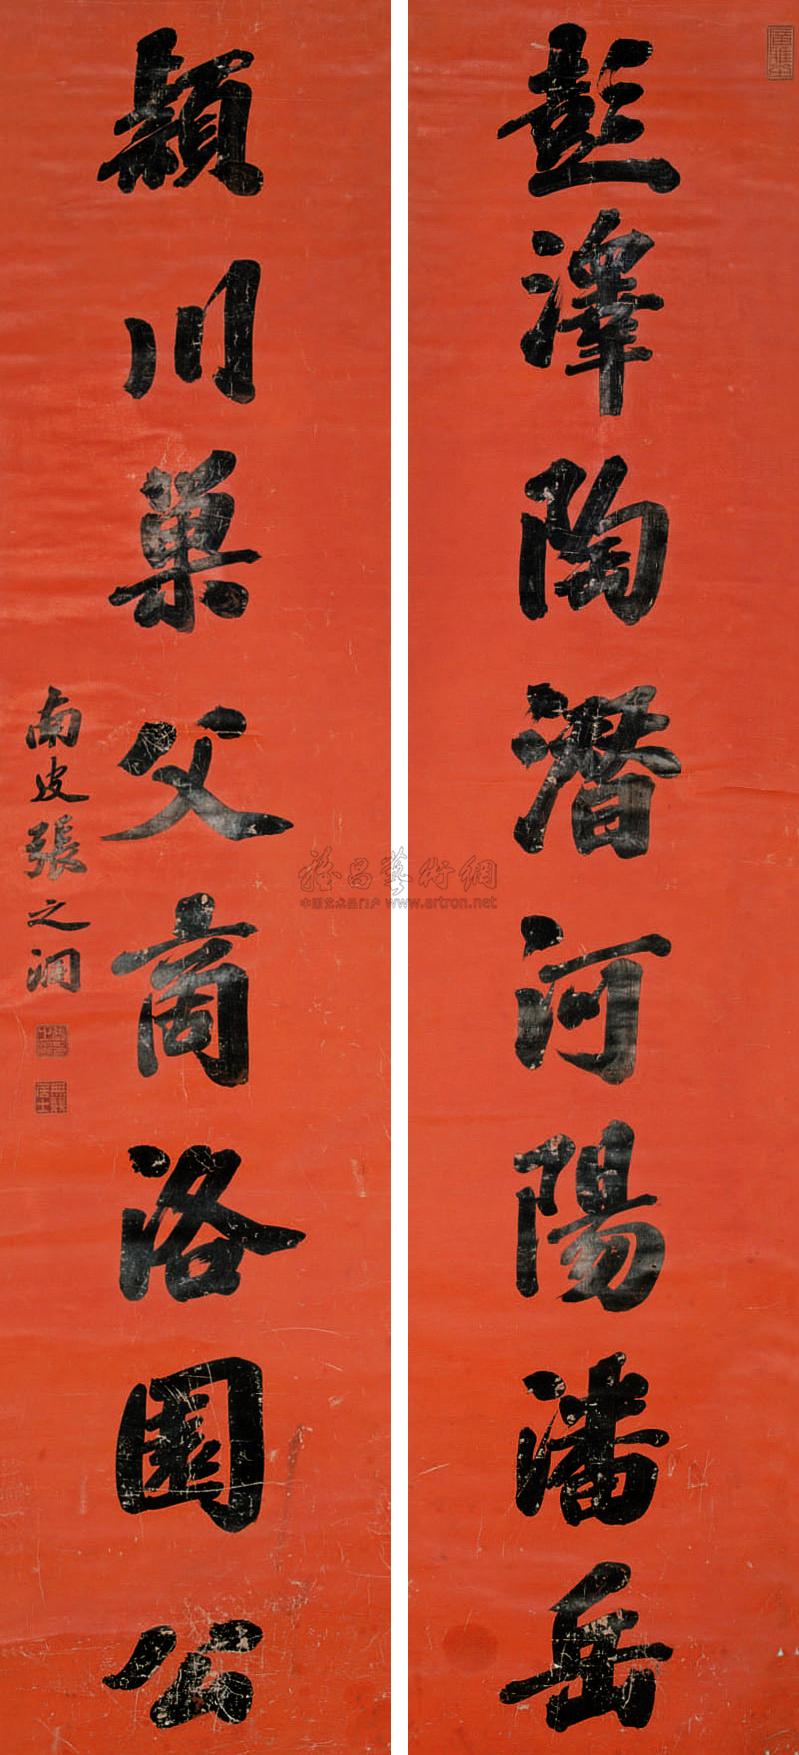 彭澤陶潛河陽潘岳
潁川巢父商洛園公
南皮張之洞
中国艺术品门户 www.artron.net